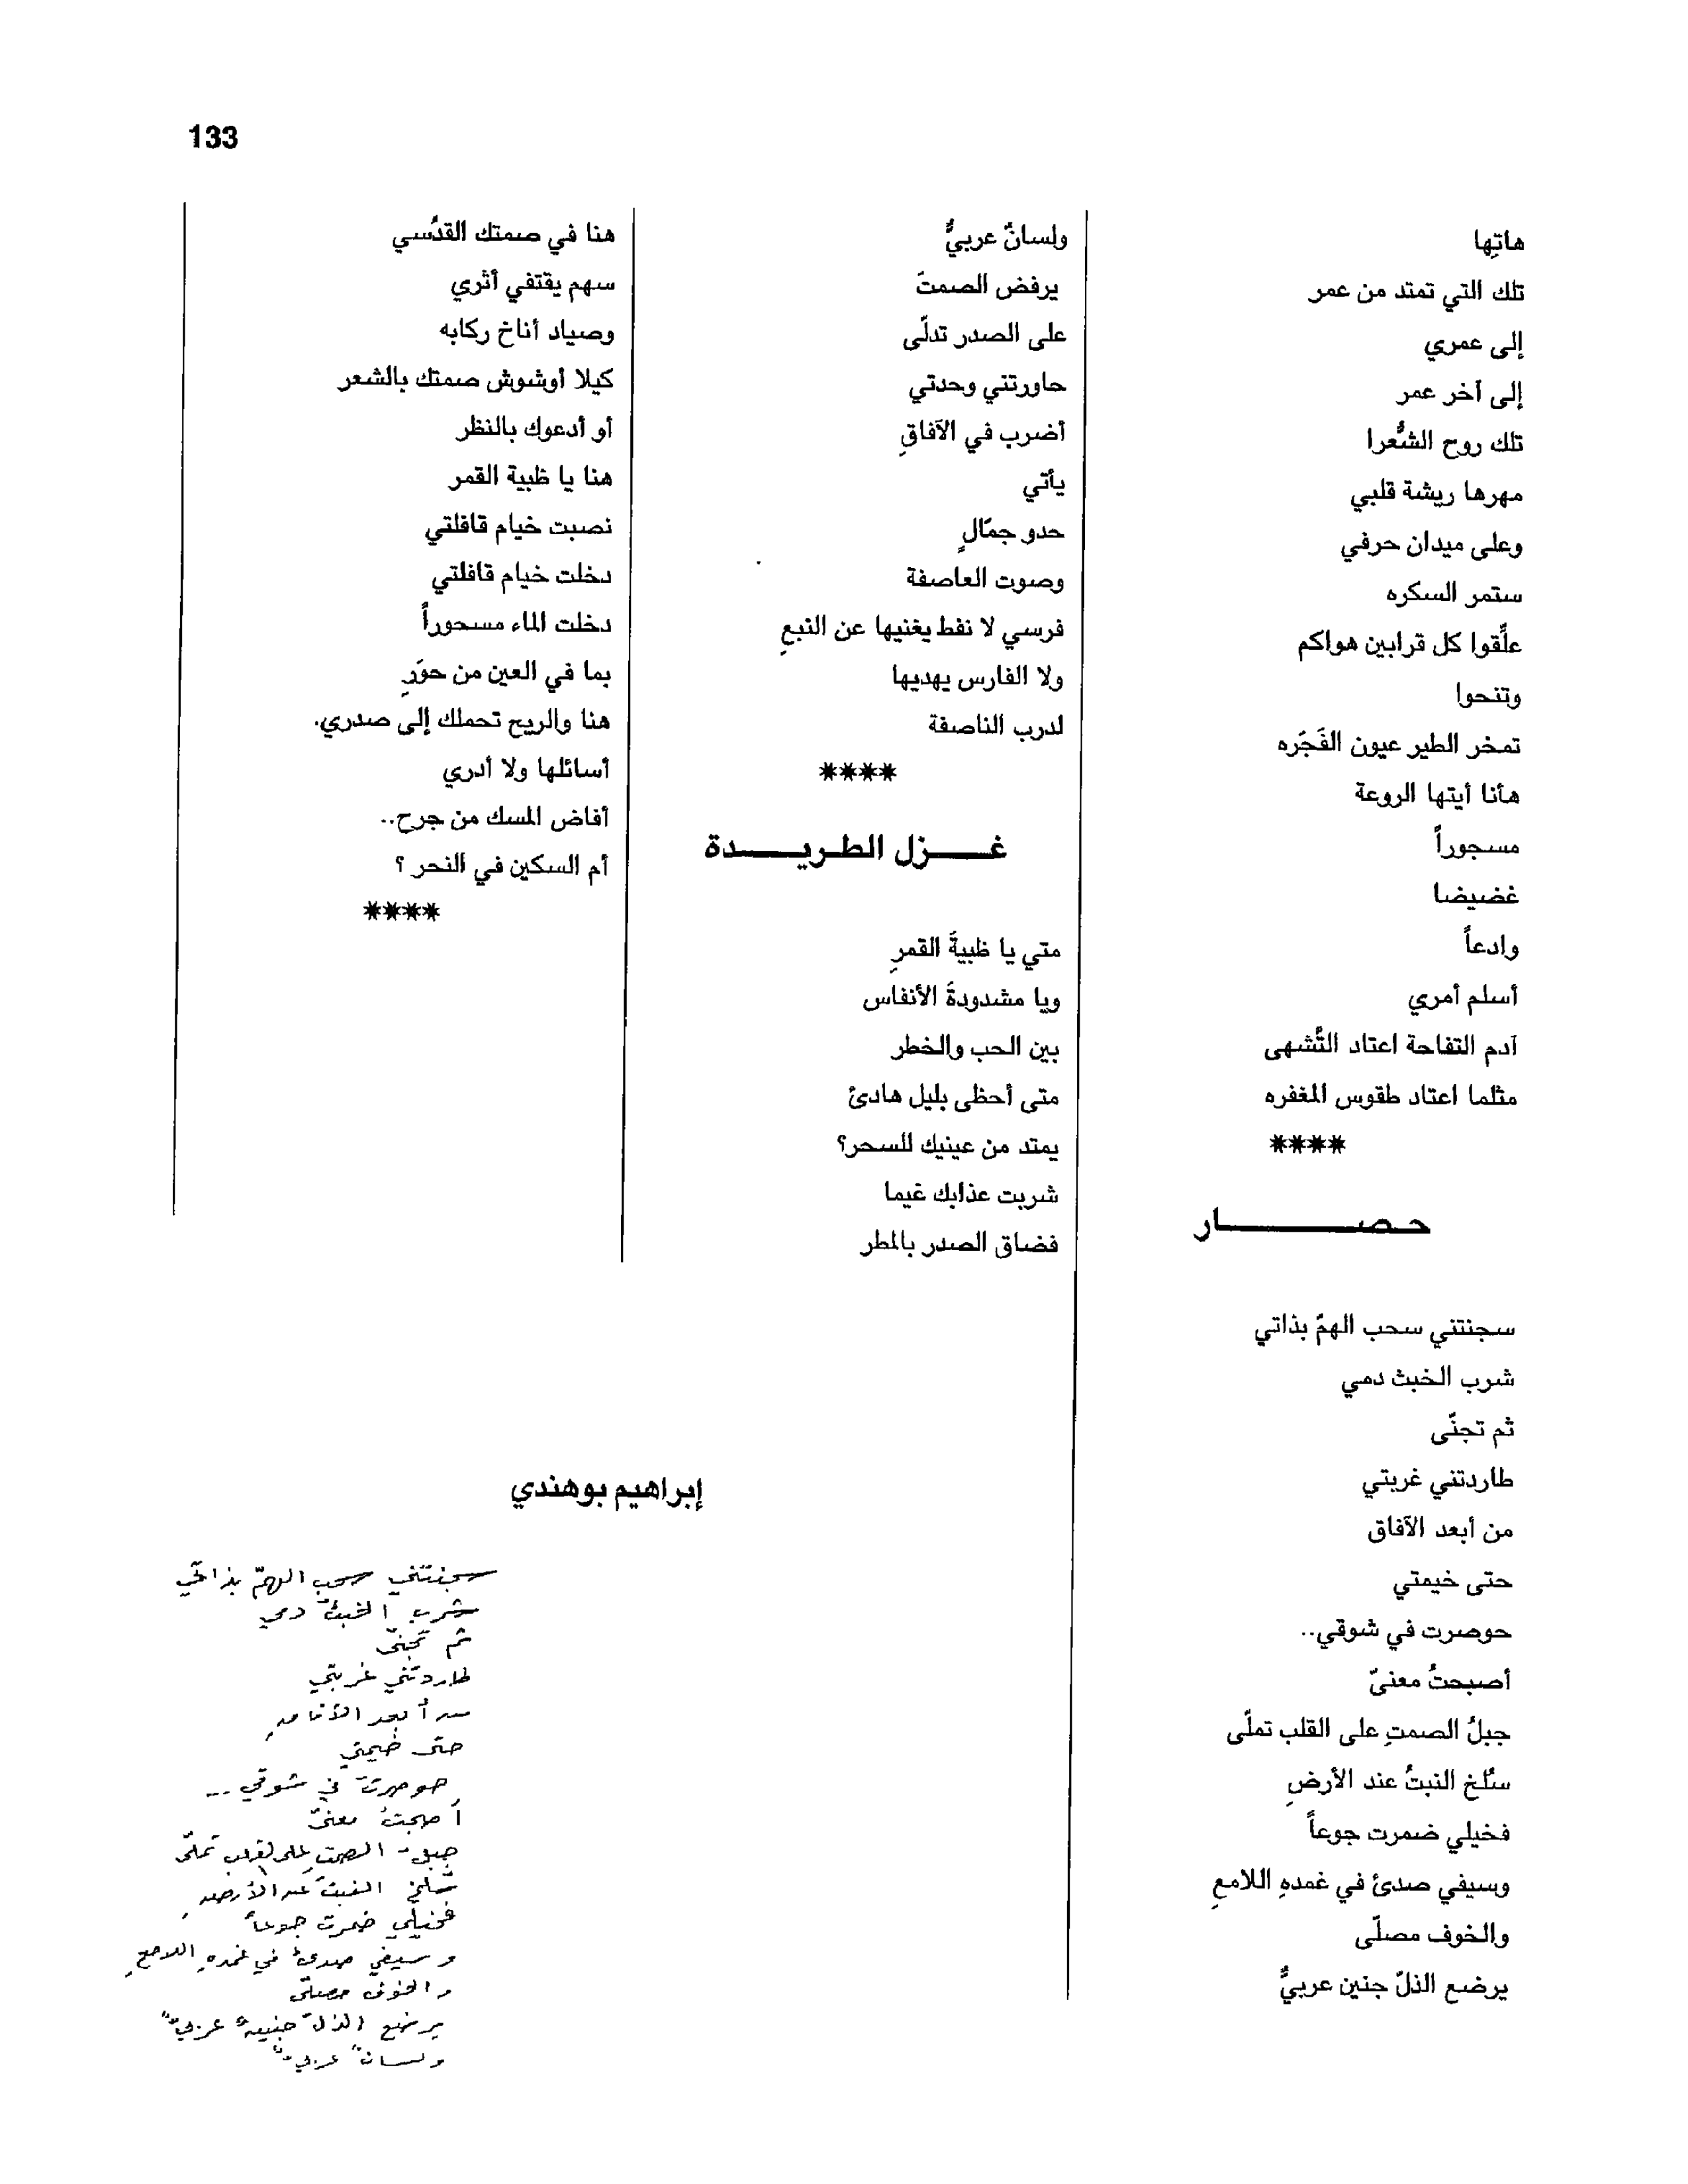 133
هاتِها
تلك التي تمتد من عمر
إلى عمري
إلى آخر عمر
تلك روح الشُّعرا
مهرها ريشة قلبي
وعلى ميدان حرفي
ستمر السكره
علِّقوا كل قرابين هواكم
وتنحوا
تمخر الطير عيون الفَجَره
هأنا أيتها الروعة
مسجوراً
غضيضا
وادعاً
أسلم أمري
آدم التفاحة اعتاد التَّشهى
مثلما اعتاد طقوس المغفره
****
حصار
سجنتني سحب الهمّ بذاتي
شرب الخبث دمي
ثم تجنّى
طاردتني غربتي
من أبعد الآفاق
حتى خيمتي
حوصرت في شوقي..
أصبحتُ معنىّ
جبلُ الصمتِ على القلب تملّى
سُلخ النبتُ عند الأرضِ
فخيلي ضمرت جوعاً
وسيفي صدئ في غمدهِ اللامعِ
والخوف مصلّى
يرضع الذلّ جنين عربيٌّ
ولسانٌ عربيٌّ
يرفض الصمتَ
على الصدر تدلّى
حاورتني وحدتي
أضرب في الآفاقِ
يأتي
حدو جمّالٍ
وصوت العاصفة
فرسي لا نفط يغنيها عن النبعِ
ولا الفارس يهديها
لدرب الناصفة
****
غزل الطريدة
متي يا ظبيةَ القمرِ
ويا مشدودةَ الأنفاس
بين الحب والخطر
متى أحظى بليل هادئ
يمتد من عينيك للسحر؟
شربت عذابك غيما
فضاق الصدر بالمطر
هنا في صمتك القدُسي
سهم يقتفي أثري
وصياد أناخ ركابه
كيلا أوشوش صمتك بالشعر
أو أدعوك بالنظر
هنا يا ظبية القمر
نصبت خيام قافلتي
دخلت خيام قافلتي
دخلت الماء مسحوراً
بما في العين من حوَرِ
هنا والريح تحملك إلى صدري.
أسائلها ولا أدري
أفاض المسك من جرح..
أم السكين في النحر ؟
****
إبراهيم بوهندي
سجنتني سحب الهمّ بذاتي
شرب الخبثُ دمي
ثم تجنّى
طاردتني غربتي
من أبعد الآفاقِ
حتى خيمتي
حوصرت في شوقي ..
أصبحتُ معنىّ
جبلُ الصمتِ على القلب تملّى
سُلخ النبتُ عند الأرضِ
فخيلي ضمرت جوعاً
وسيفي صدئٌ في غمدهِ اللامعِ
والخوف مصلّى
يرضع الذلّ جنينٌ عربيٌّ
ولسانٌ عربيٌّ